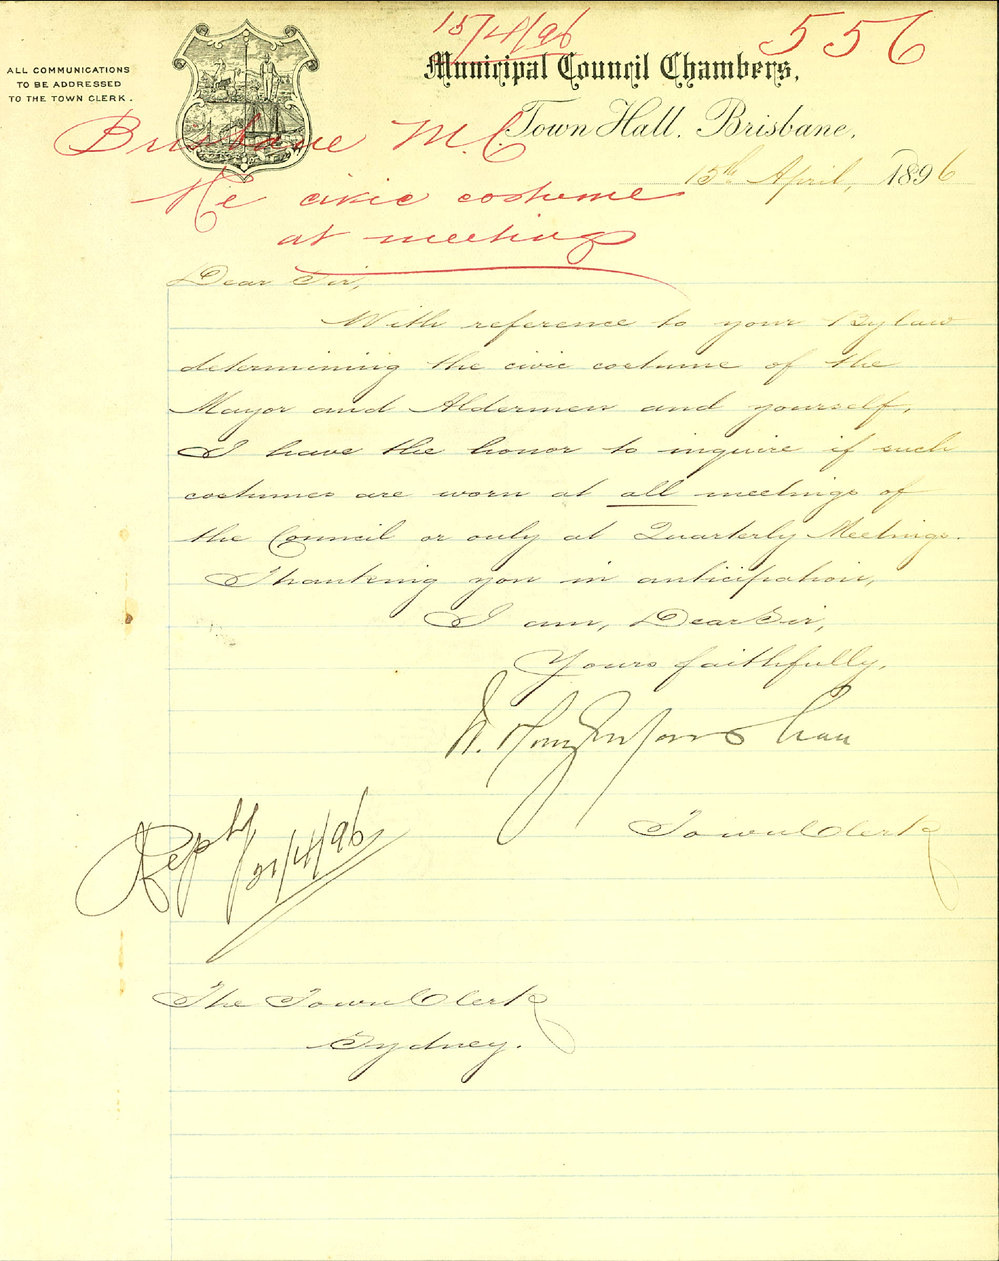 15/4/96
556
ALL COMMUNICATIONS
TO BE ADDRESSED
TO THE TOWN CLERK.
Municipal Council Chambers,
Town Hall, Brisbane,
Brisbane M.C.
15th April, 1896
Re civic costume
at meetings
Dear Sir,
With reference to your Bylaw
determining the civic costume of the
Mayor and Aldermen and yourself,
I have the honor to inquire if such
costumes are worn at all meetings of
the Council or only at Quarterly Meetings.
Thanking you in anticipation,
I am, Dear Sir,
Yours faithfully,
Town Clerk
Reply 21/4/96
The Town Clerk
Sydney.